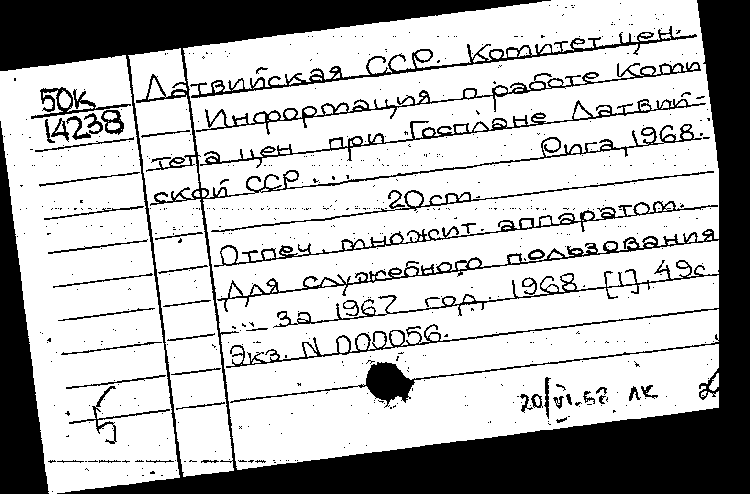 50к
14238
Латвийская ССР. Комитет цен.
Информация о работе Коми
тета цен при Госплане Латвий=
ской ССР...
Рига, 1968.
20 cm.
Отпеч. множит. аппаратом.
Для служебного пользования
... за 1967 год, 1968. [1], 49с
Экз. N 000056.
5
20/VI-68 ЛК